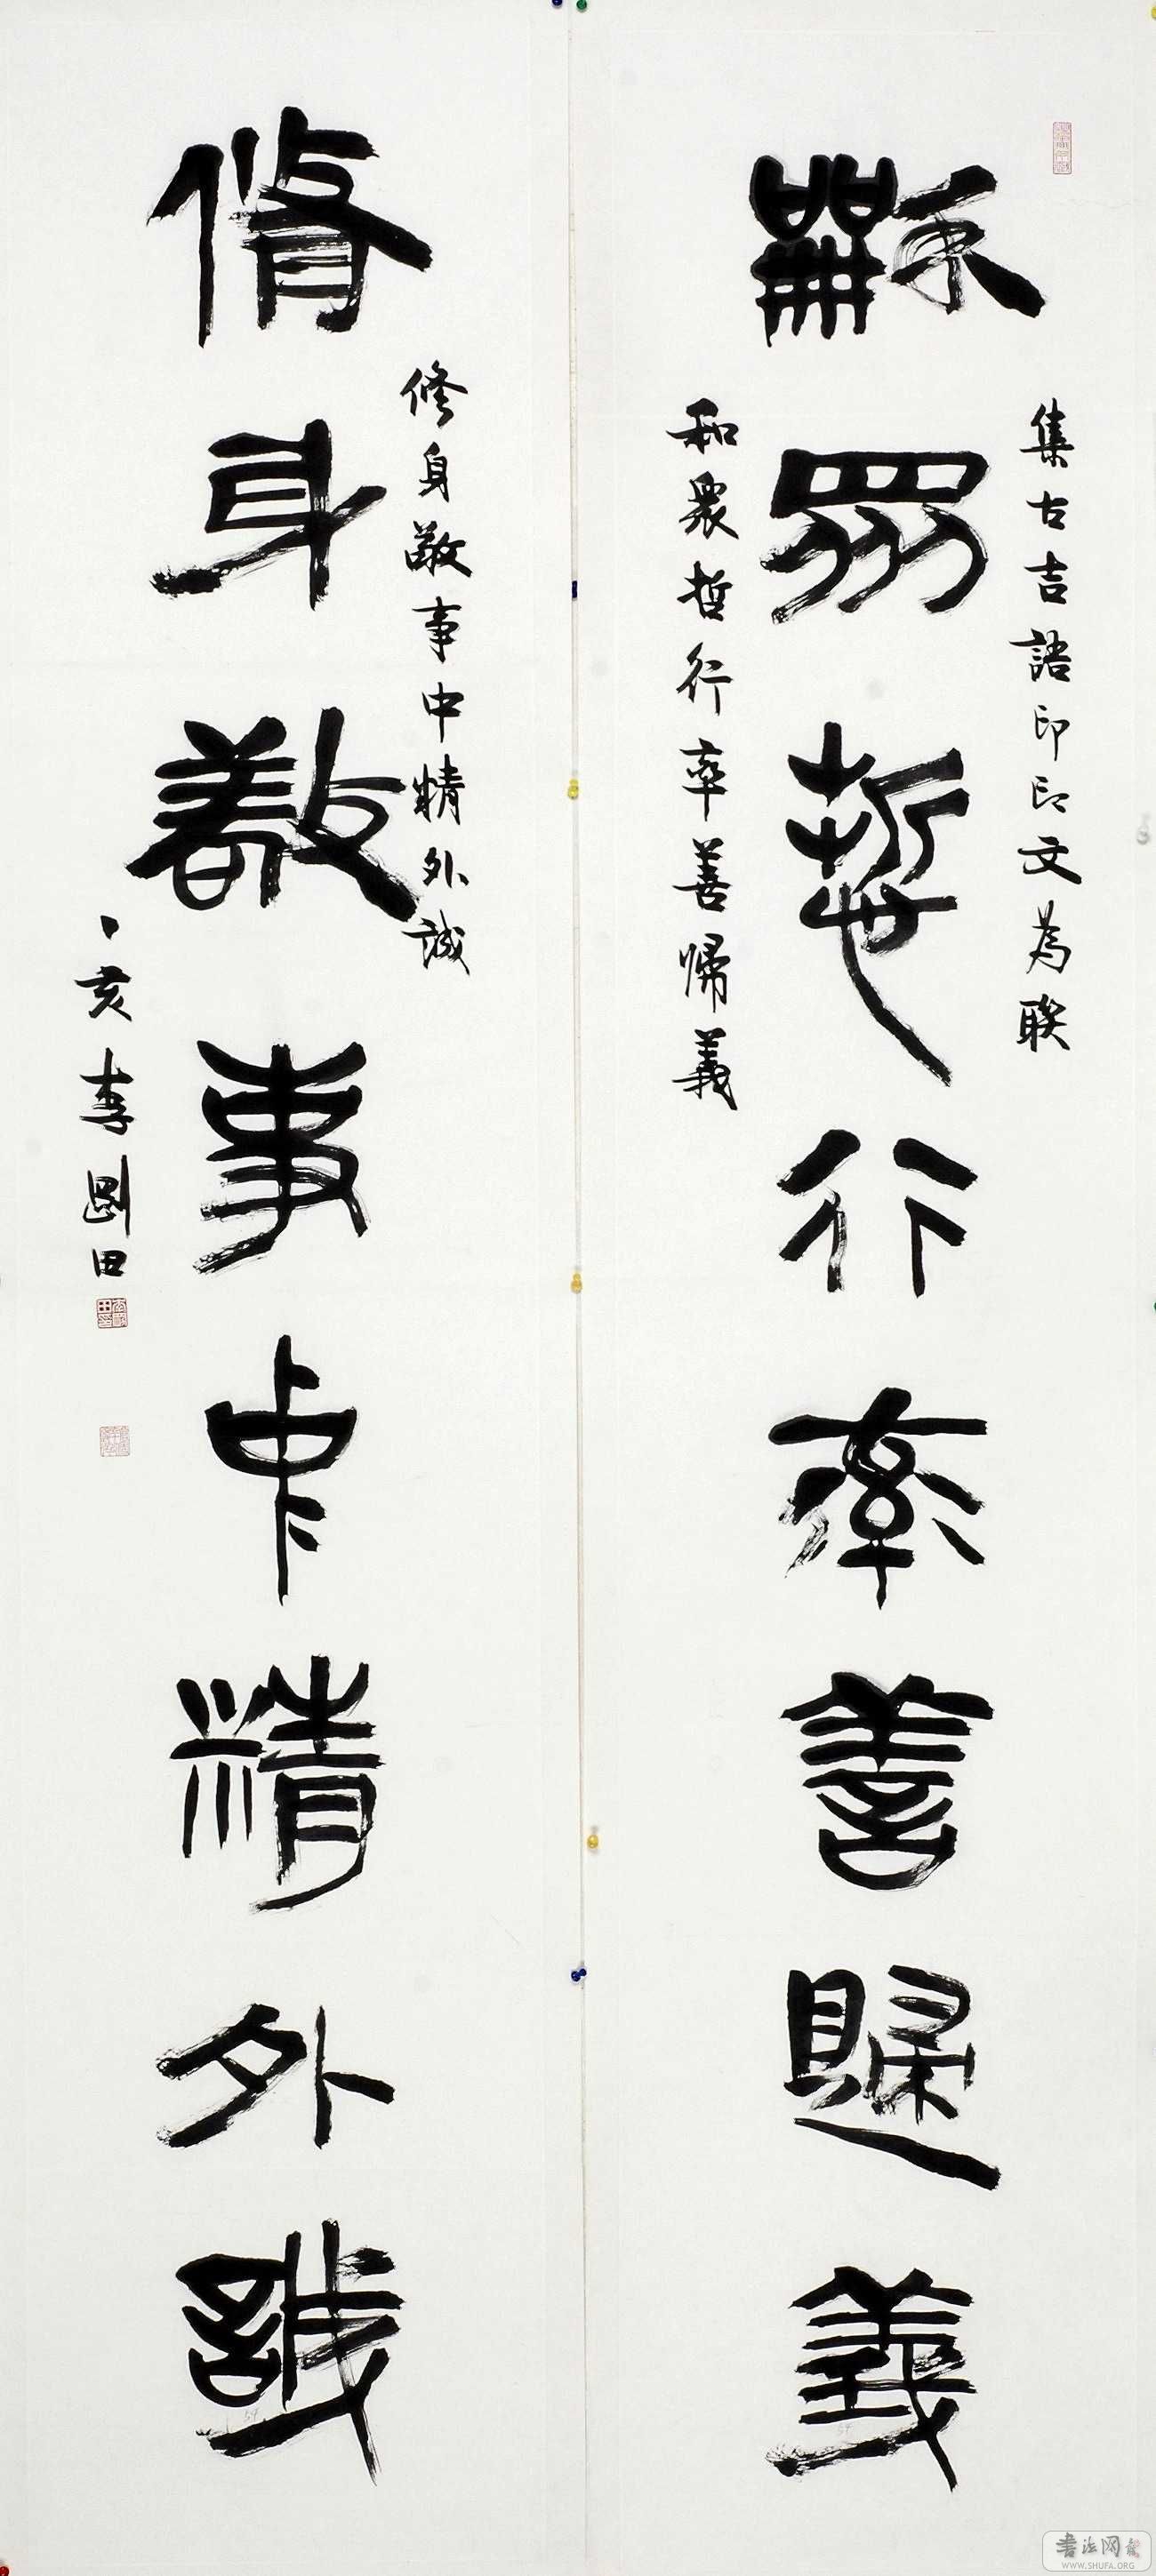 龢眾悊行率善歸義
集古吉語印印文為聯
和眾哲行率善歸義
脩身敬事中精外誠
修身敬事中精外誠
丶亥李剛田
書法网
WWW.SHUFA.ORG